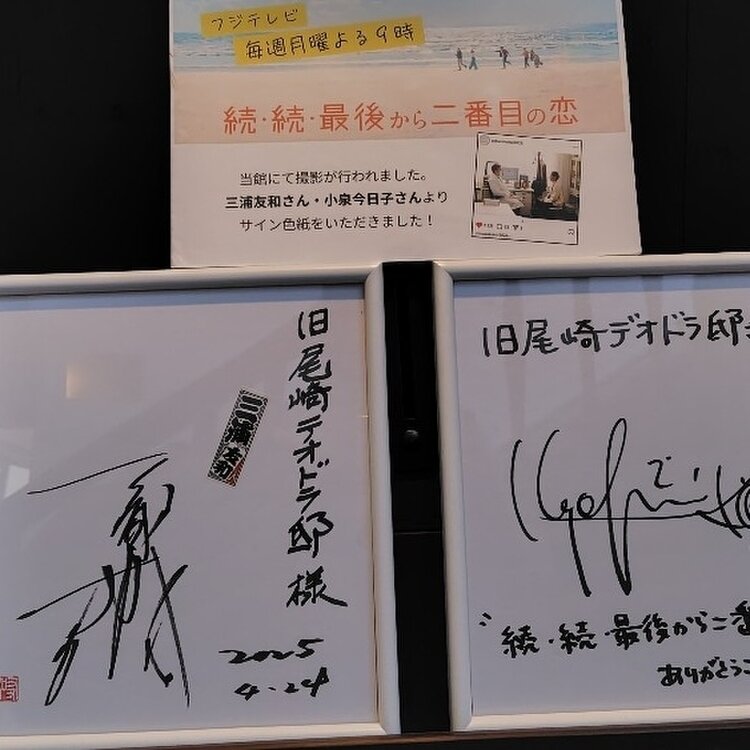 フジテレビ
毎週月曜よる9時
続・続・最後から二番目の恋
当館にて撮影が行われました。
三浦友和さん・小泉今日子さんより
サイン色紙をいただきました！
旧尾崎テオドラ邸様
三浦友和
2025
4.24
旧尾崎テオドラ邸
"続・続・最後から二番
ありがとうご